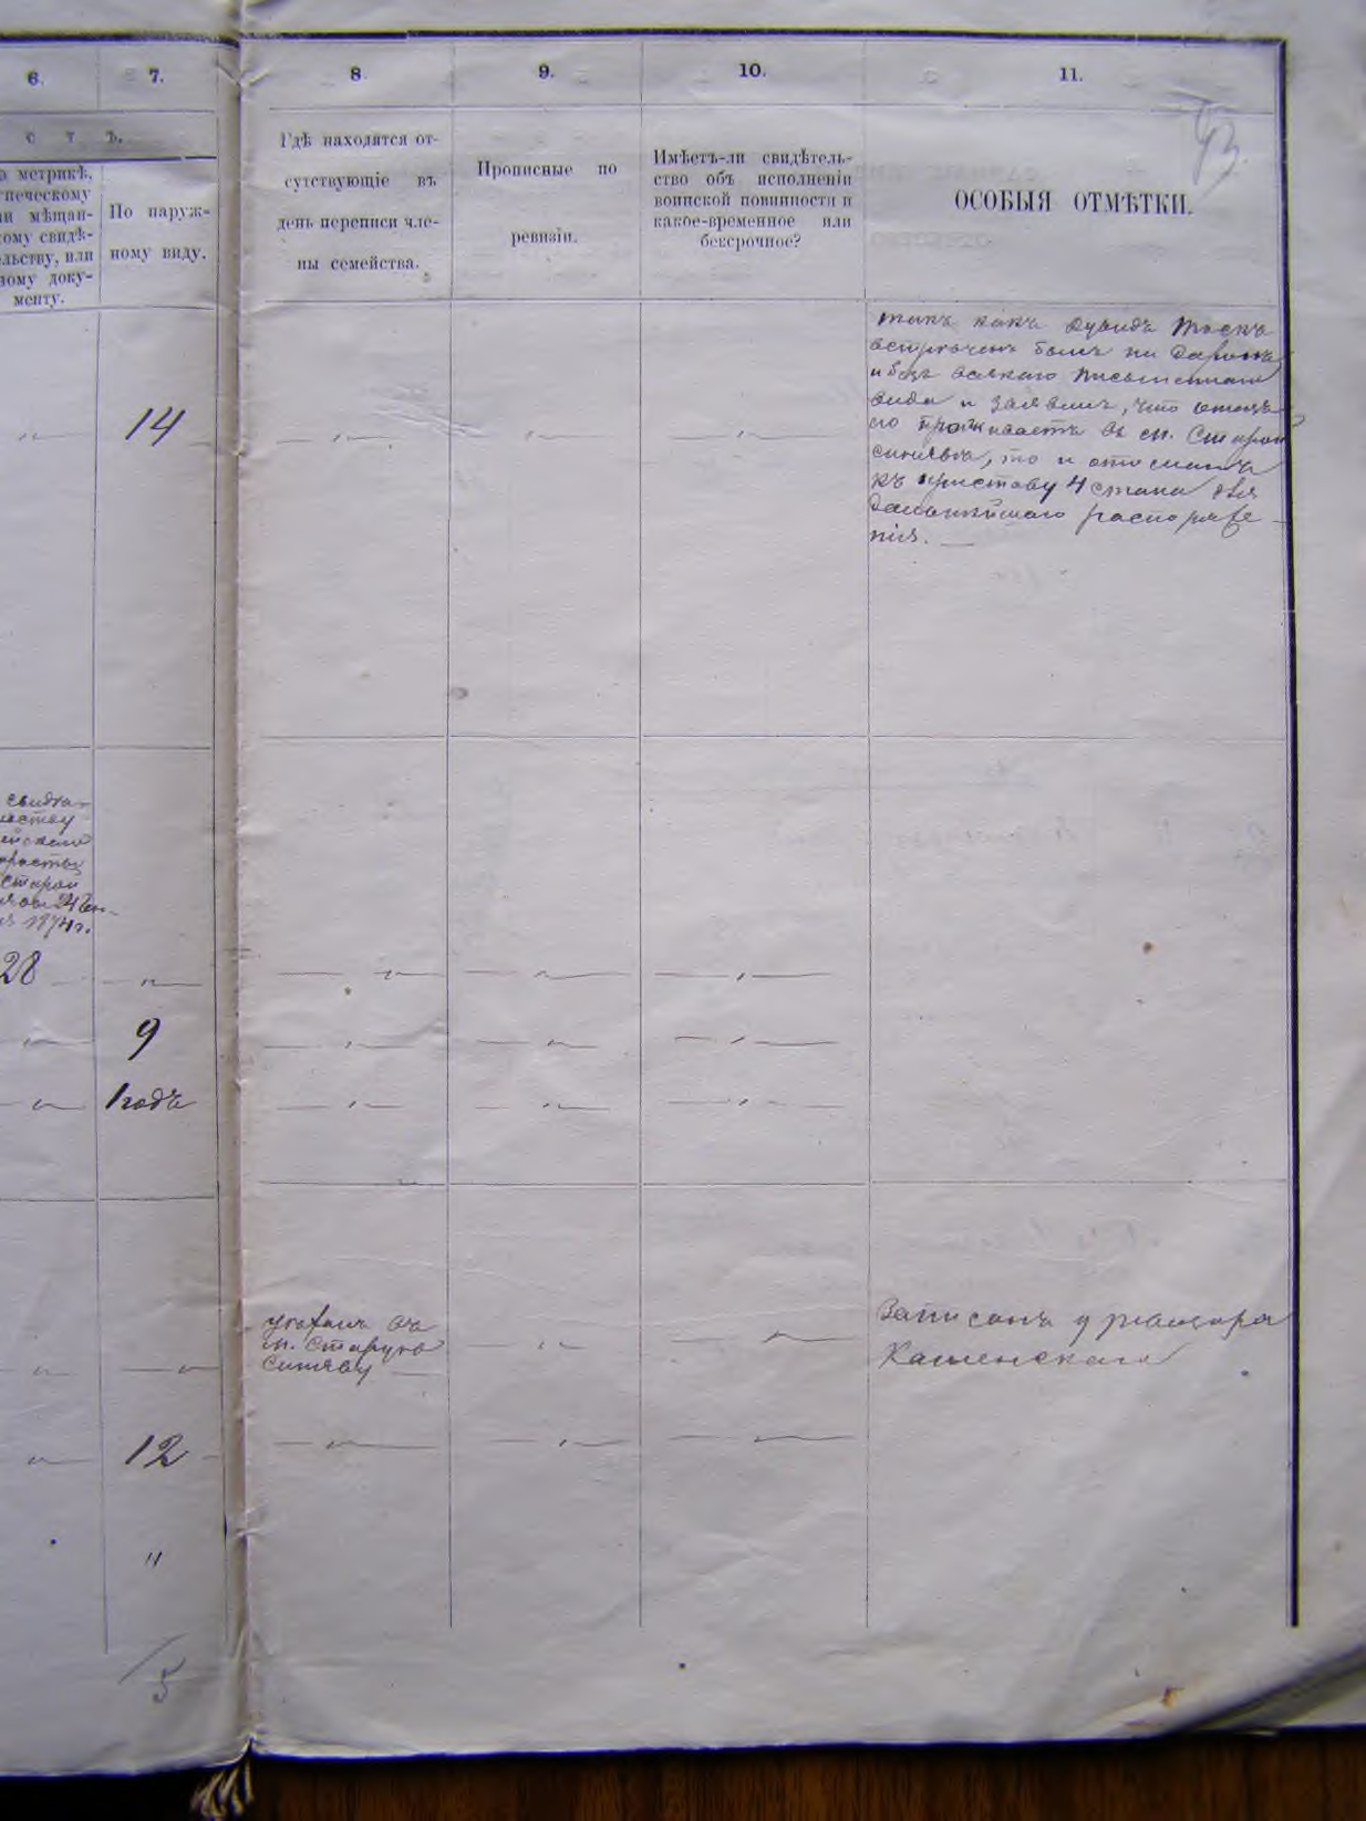 6.
7.
8.
9.
10.
11.
93.
с т ъ.
о метрикѣ,
ническому
и мѣщан-
кому свидѣ-
льству, или
ному доку-
менту.
По наруж-
ному виду.
Гдѣ находятся от-
сутствующіе въ
день переписи чле-
ны семейства.
Прописные по
ревизіи.
Имѣетъ-ли свидѣтель-
ство объ исполненіи
воинской повинности и
какое-временное или
безсрочное?
ОСОБЫЯ ОТМѢТКИ.
14
такъ какъ Дувидъ
встрѣченъ былъ на дорогѣ
и безъ всякаго письменнаго
вида и заявилъ, что отецъ
его проживаетъ въ м. Старой
Синявѣ, то и отосланъ
къ приставу 4 стана для
дальнѣйшаго распоряже-
нія.
свидѣ-
старой
1874 г.
28
9
1 годъ
уѣхалъ въ
м. Старую
Синяву
Записанъ у
Каменскаго
12
"
15